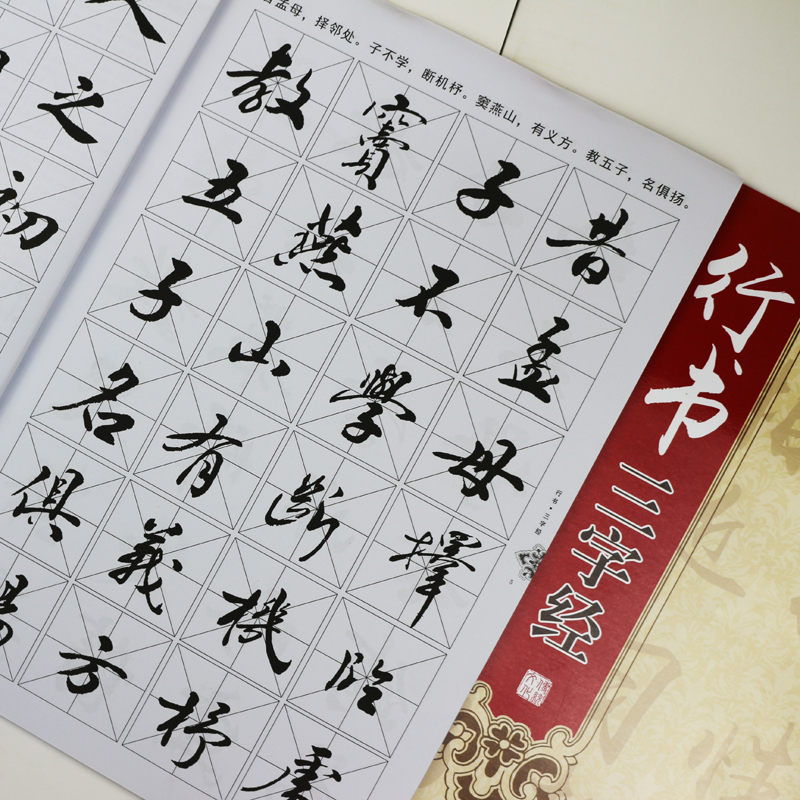 昔孟母,择邻处。子不学,断机杼。窦燕山,有义方。教五子,名俱扬。
昔孟母擇處
子不學斷機杼
竇燕山有義方
教五子名俱揚
行书·三字经
5
人之初
行书三字经